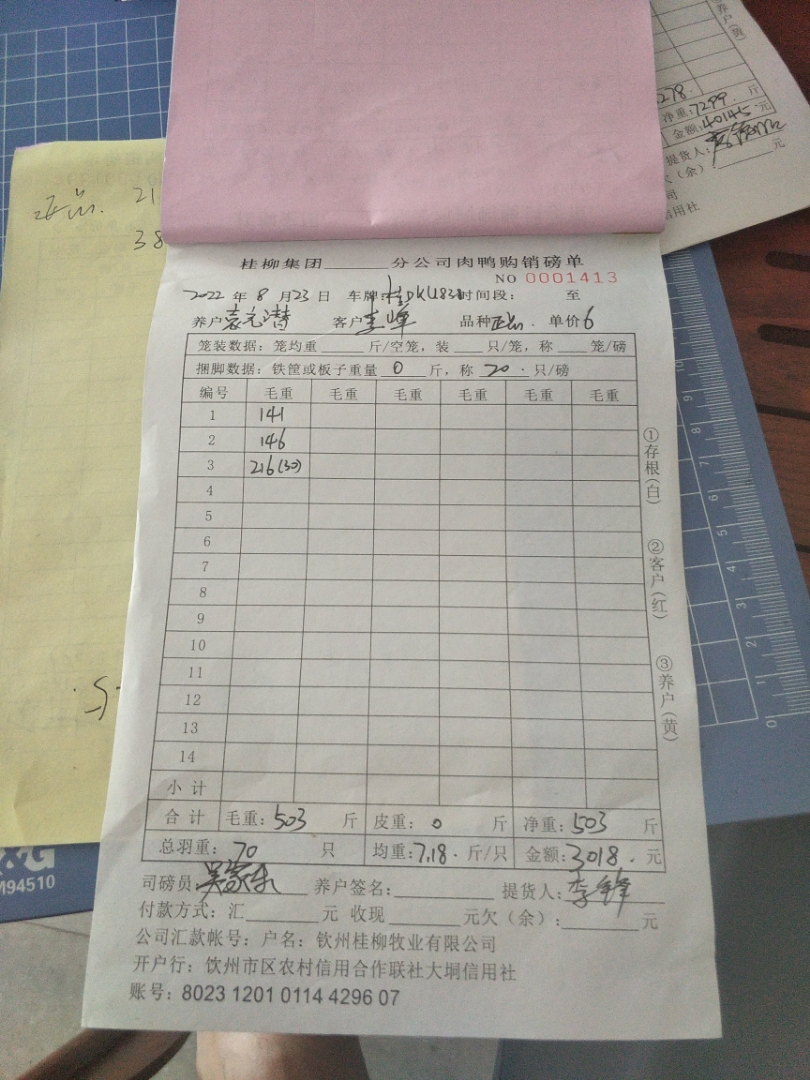 养户(黄)
278.
净重:7299 斤
金额:40145 元
提货人:
(余): 元
司
信用社
正品. 21
38
桂柳集团 分公司肉鸭购销磅单
NO 0001413
2022 年 8 月 23 日 车牌:桂DKU831 时间段: 至
养户 袁元潜 客户 李峰 品种 正品. 单价 6
笼装数据:笼均重 斤/空笼,装 只/笼,称 笼/磅
捆脚数据:铁筐或板子重量 0 斤,称 20. 只/磅
编号 毛重 毛重 毛重 毛重 毛重 毛重
1 141
2 146
3 216(30)
4
5
6
7
8
9
10
11
12
13
14
小计
合计 毛重:503 斤 皮重:0 斤 净重:503 斤
总羽重:70 只 均重:7.18. 斤/只 金额:3018. 元
司磅员: 吴家东 养户签名: 提货人: 李锋
付款方式:汇 元 收现 元欠(余): 元
公司汇款帐号:户名:钦州桂柳牧业有限公司
开户行:饮州市区农村信用合作联社大垌信用社
账号:8023 1201 0114 4296 07
①存根(白)
②客户(红)
③养户(黄)
10
9
8
7
6
5
4
3
2
1
0
&G
M94510